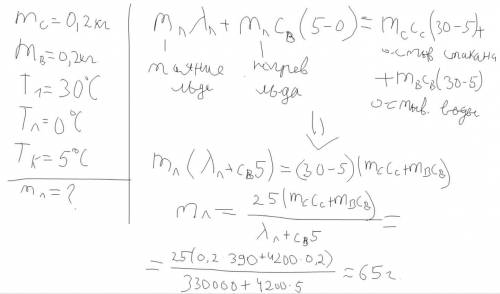 mс = 0,2 кг
mв = 0,2кг
T1 = 30°C
Tл = 0°C
Tк = 5°C
mл = ?
mл λл + mл cв (5-0) = mc cc (30-5) +
таяние льда
нагрев льда
остыв стакана
+ mв cв (30-5)
остыв. воды
⇓
mл (λл + cв 5) = (30-5) (mc cc + mв cв)
mл = 25 (mc cc + mв cв) / λл + cв 5 =
= 25(0,2 · 390 + 4200 · 0,2) / 330000 + 4200 · 5 ≈ 65 г